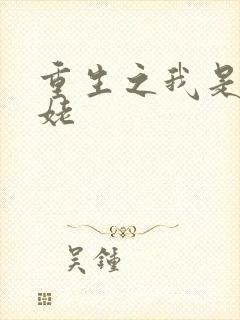 重生之我是
姥
吴锺